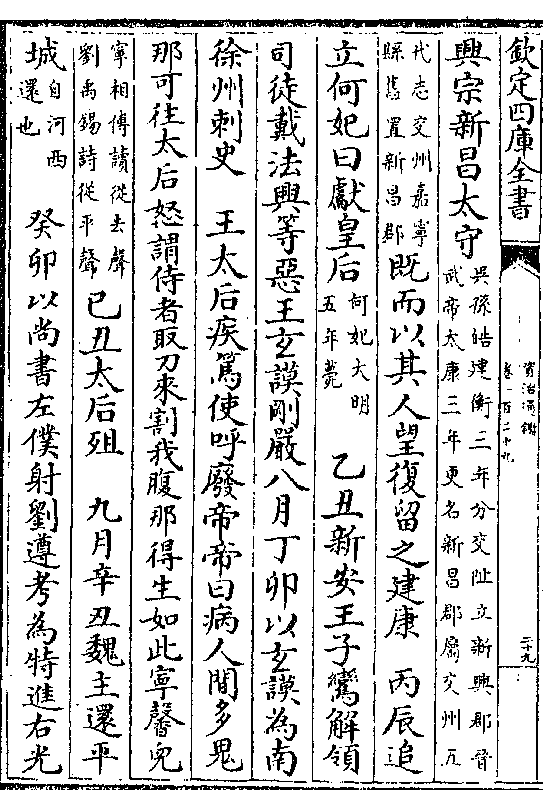 欽定四庫全書
資治通鑑
卷一百二十九
二十九
興宗新昌太守
吳孫皓建衡三年分交阯立新興郡晉
武帝太康三年更名新昌郡屬交州五
代志交州嘉寧
縣舊置新昌郡
既而以其人望復留之建康　丙辰追
立何妃曰獻皇后
何妃大明
五年薨
乙丑新安王子鸞解領
司徒戴法興等惡王玄謨剛嚴八月丁卯以玄謨為南
徐州刺史　王太后疾篤使呼廢帝帝曰病人間多鬼
那可往太后怒謂侍者取刀來割我腹那得生如此寧馨兒
寧相傳讀從去聲
劉禹錫詩從平聲
己丑太后殂　九月辛丑魏主還平
城
自河西
還也
癸卯以尚書左僕射劉遵考為特進右光